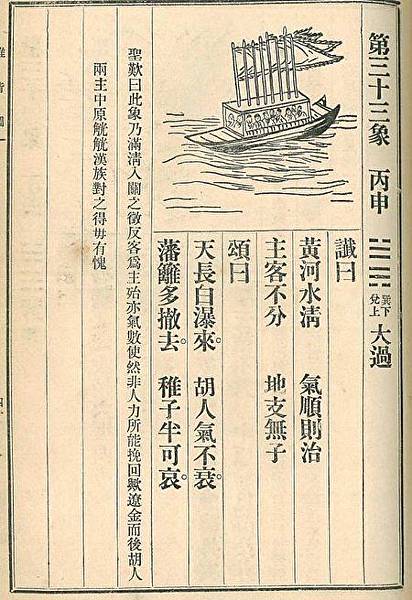 第三十三象 丙申 巽下兌上 大過
讖曰
黃河水清 氣順則治
主客不分 地支無子
頌曰
天長白瀑來。 胡人氣不衰。
藩籬多撤去。 稚子半可哀。
聖歎曰此象乃滿清入關之徵反客為主殆亦氣數使然非人力所能挽回歟遼金而後胡人
兩主中原觥觥漢族對之得毋有愧